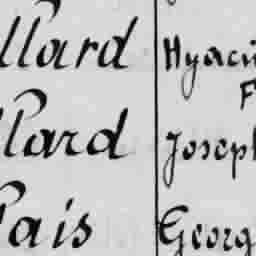 llard Hyacin
F
llard Joseph
Pais Georg